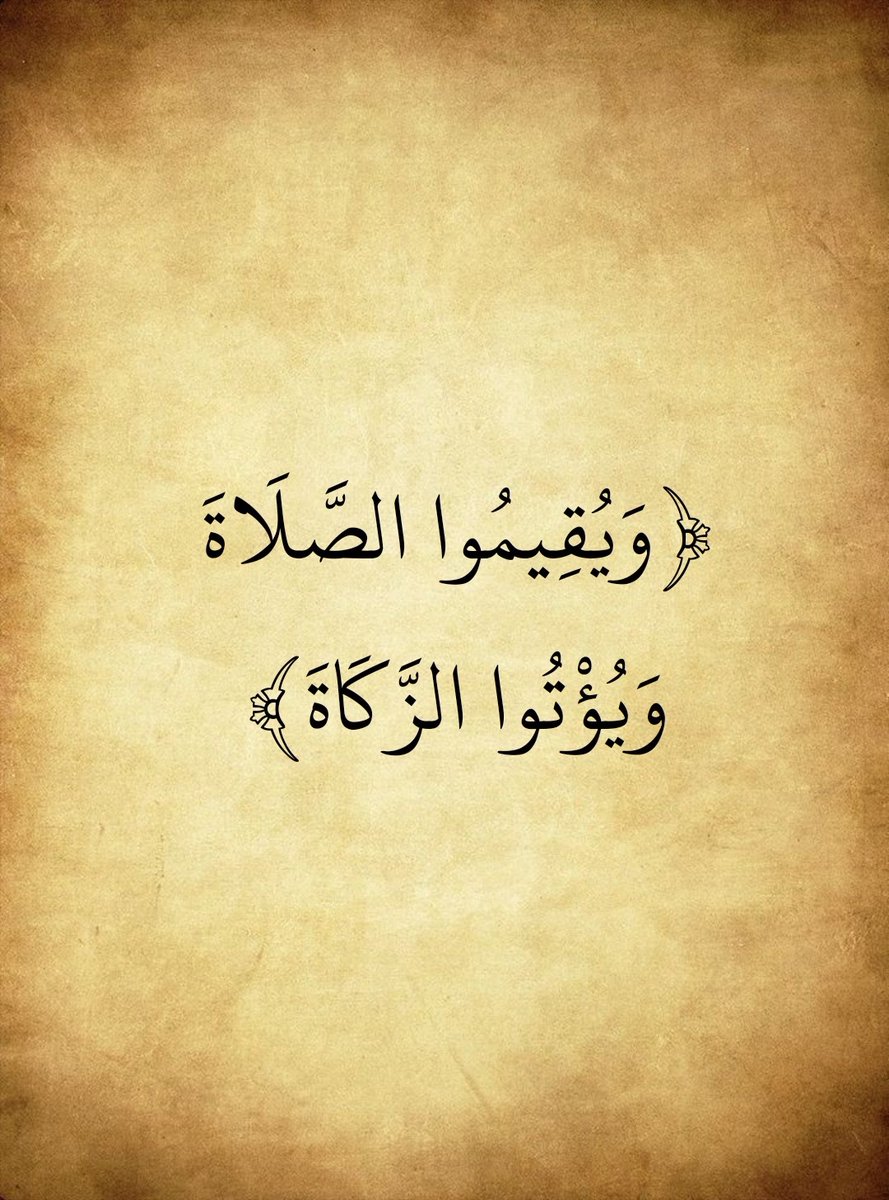 ﴿وَيُقِيمُوا الصَّلَاةَ
وَيُؤْتُوا الزَّكَاةَ﴾